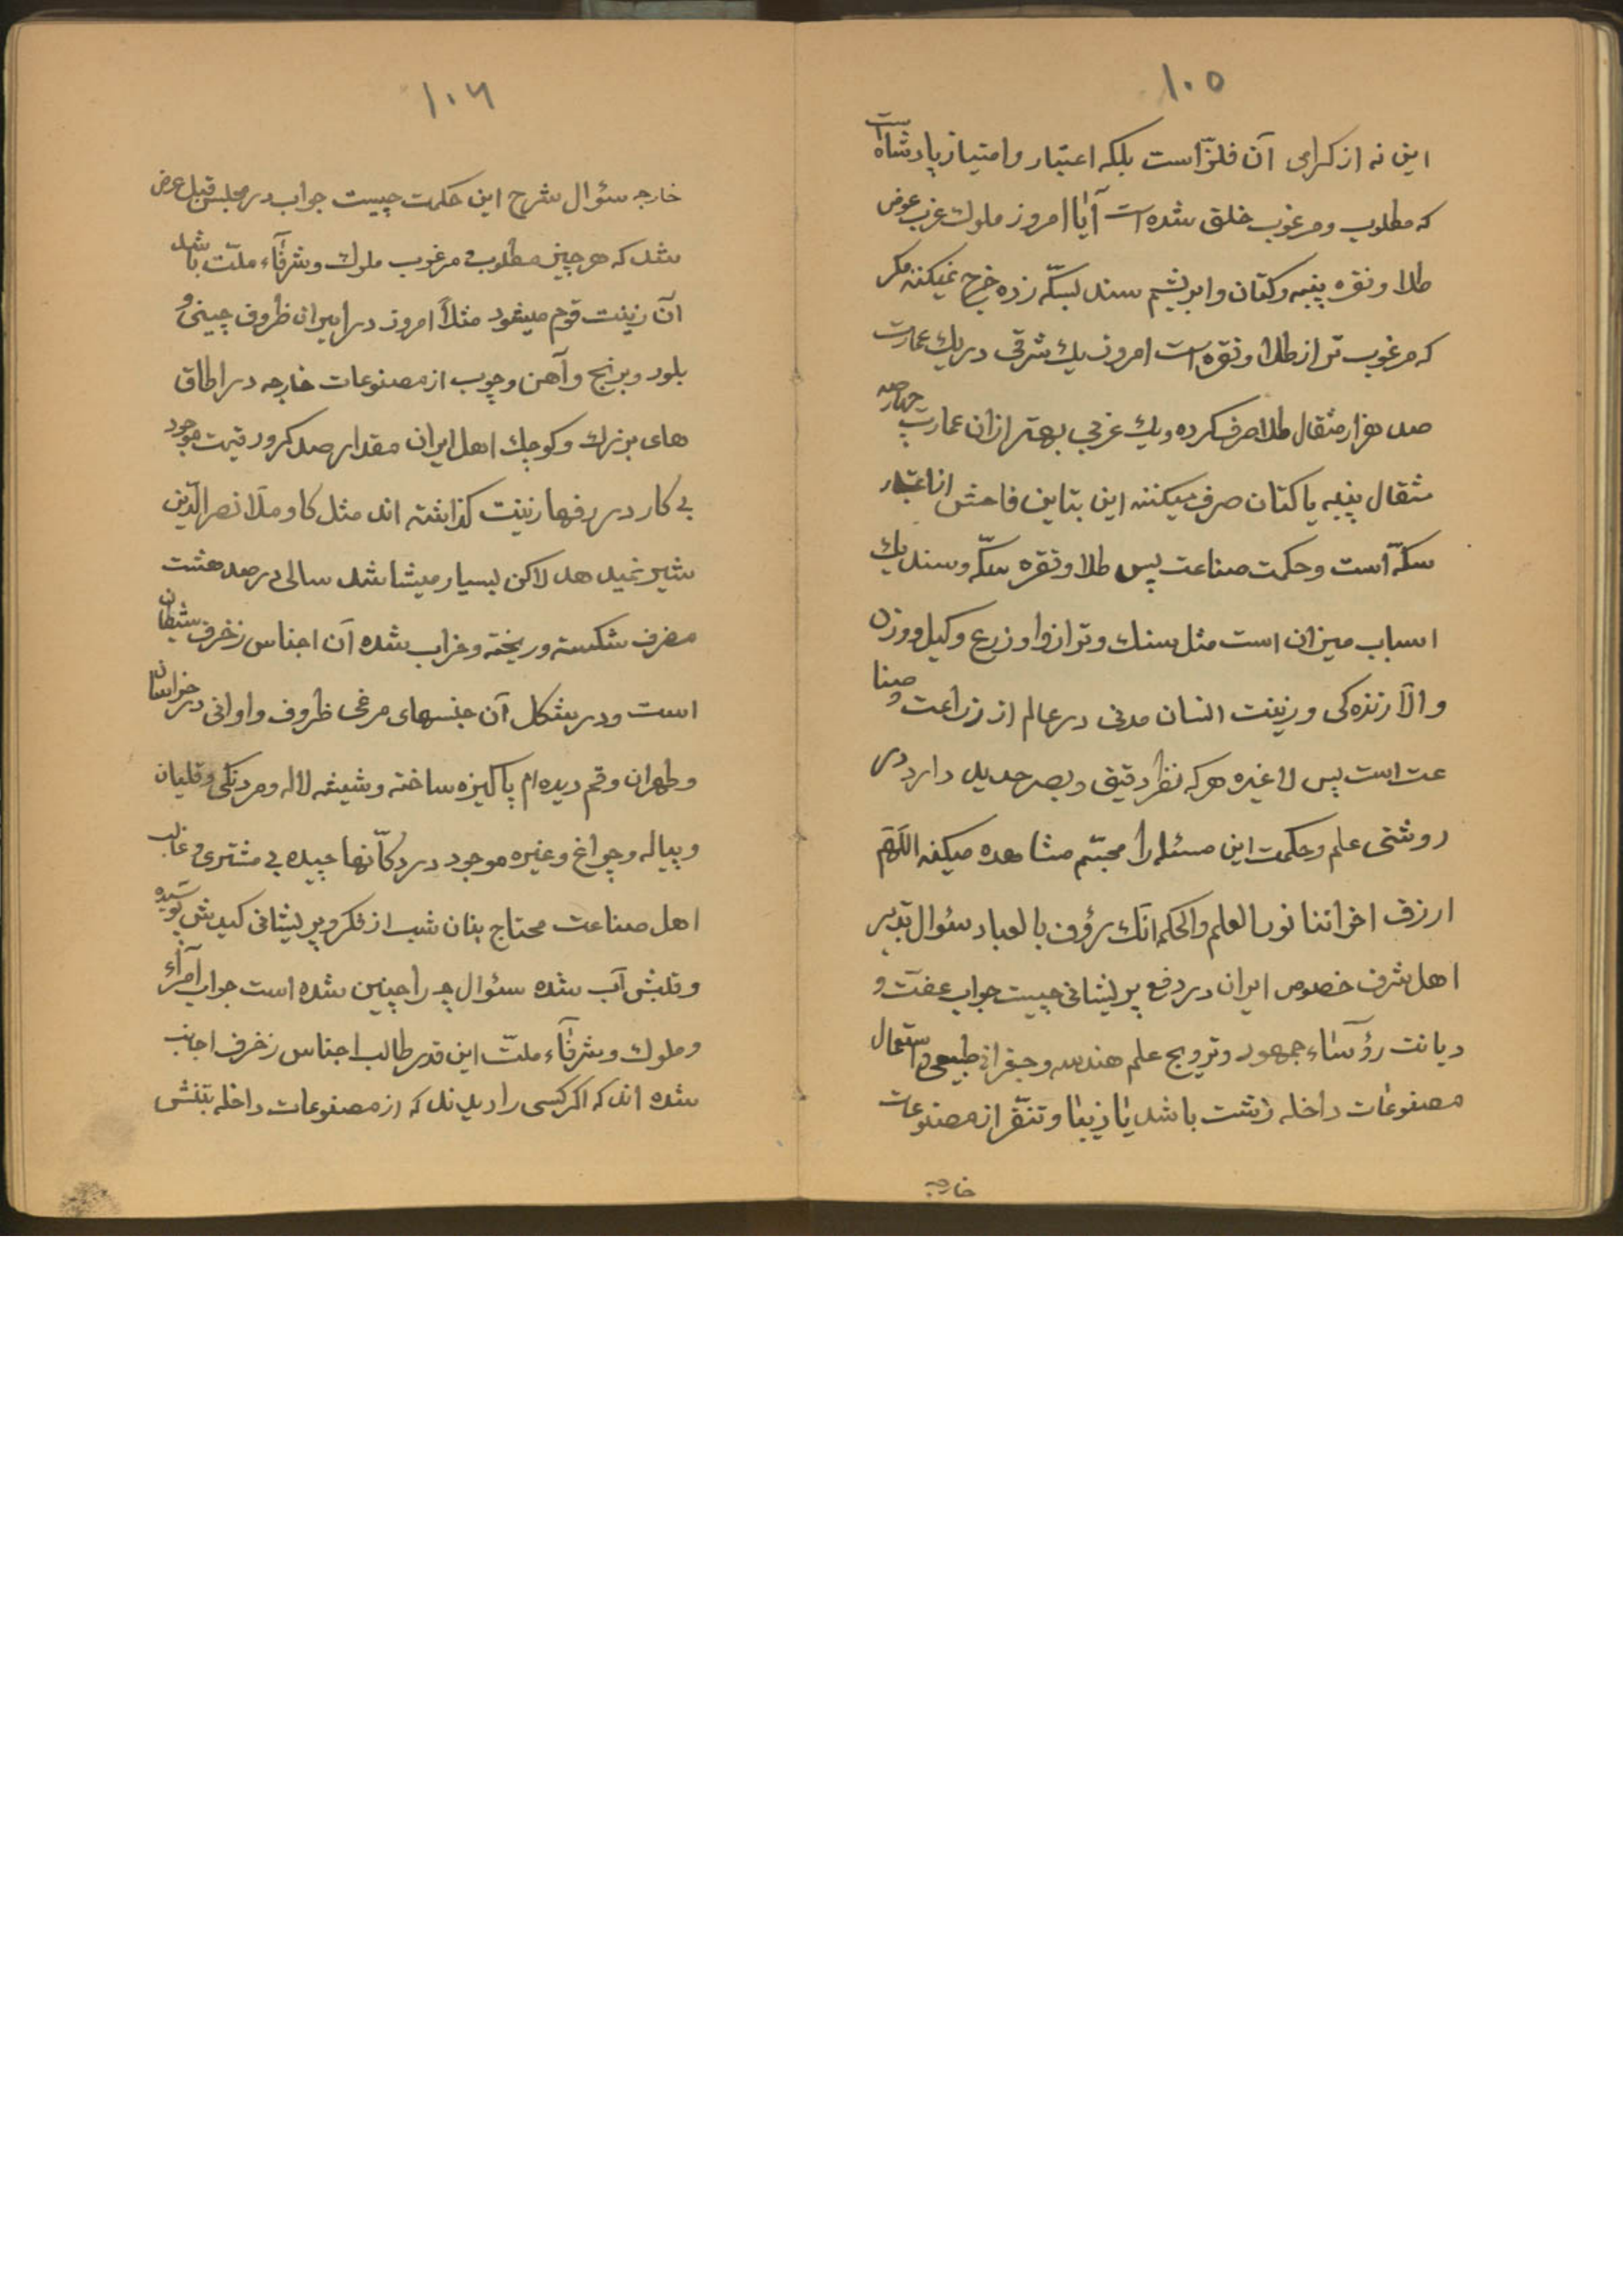 ۱۰۵
این نه از کرامی آن فلزّ است بلکه اعتبار و امتیاز پادشاه است
که مطلوب و مرغوب خلق شده است آیا امروز ملوک غرب عوض
طلا و نقره پنبه و کتان و ابریشم سند بسکّه زده خرج نمیکنند مکر
که مرغوب تر از طلا و نقره است امروز یک شرقی در یک عمارت
صد هزار مثقال طلا صرف کرده و یک غربی بهتر از ان عمارت چهار صد
مثقال پنبه یا کتان صرف میکنند این تباین فاحش از اعتبار
سکّه است و حکمت صناعت پس طلا و نقره سکّه و سند یک
اسباب میزان است مثل سنک و ترازو او زرع و کیل و وزن
و الّا زنده کی و زینت انسان مدنی در عالم از زراعت و صنا
عت است پس لا غیره هر که نظر دقیق و بصر حدید دارد در
روشنی علم و حکمت این مسئله را مجسّم مشاهده میکند اللّهمّ
ارزق اخواننا نور العلم والحکم انّک رؤف بالعباد سئوال تدبیر
اهل شرف خصوص ایران در دفع پریشانی چیست جواب عفّت و
دیانت رؤسآء جمهور و ترویج علم هندسه و جغرافی طبیعی و استعمال
مصنوعات داخله زشت باشد یا زیبا و تنفّر از مصنوعات
خارجه
۱۰۶
خارجه سئوال شرح این حکمت چیست جواب در مجلس قبل عرض
شد که هر چیز مطلوب و مرغوب ملوک و شرفآء ملّت باشد
آن زینت قوم میشود مثلاً امروز در ایران ظروف چینی و
بلور و برنج و آهن و چوب از مصنوعات خارجه در اطاق
های بزرک و کوچک اهل ایران مقدار صد کرور قیمت موجود
بی کار در رفها زینت کذاشته اند مثل کاو ملّا نصرالدّین
شیر نمید هد لاکن بسیار میشاشد سالی در صد هشت
مضرف شکسته و ریخته و خراب شده آن اجناس زخرف شیطان
است و در شکل آن جنسهای مرغی ظروف و اوانی در خراسان
و طهران و قم دیده ام پاکیزه ساخته و شیشه لاله و مردنکی و قلیان
و پیاله و چراغ و غیره موجود در دکّانها چیده بی مشتری و غالب
اهل صناعت محتاج بنان شب از فکر و پریشانی کبدش پوسیده
و قلبش آب شده سئوال چرا چنین شده است جواب اُمرآء
و ملوک و شرفآء ملّت این قدر طالب اجناس زخرف اجانب
شده اند که اکر کسی را دیدند که از مصنوعات داخله بتنش